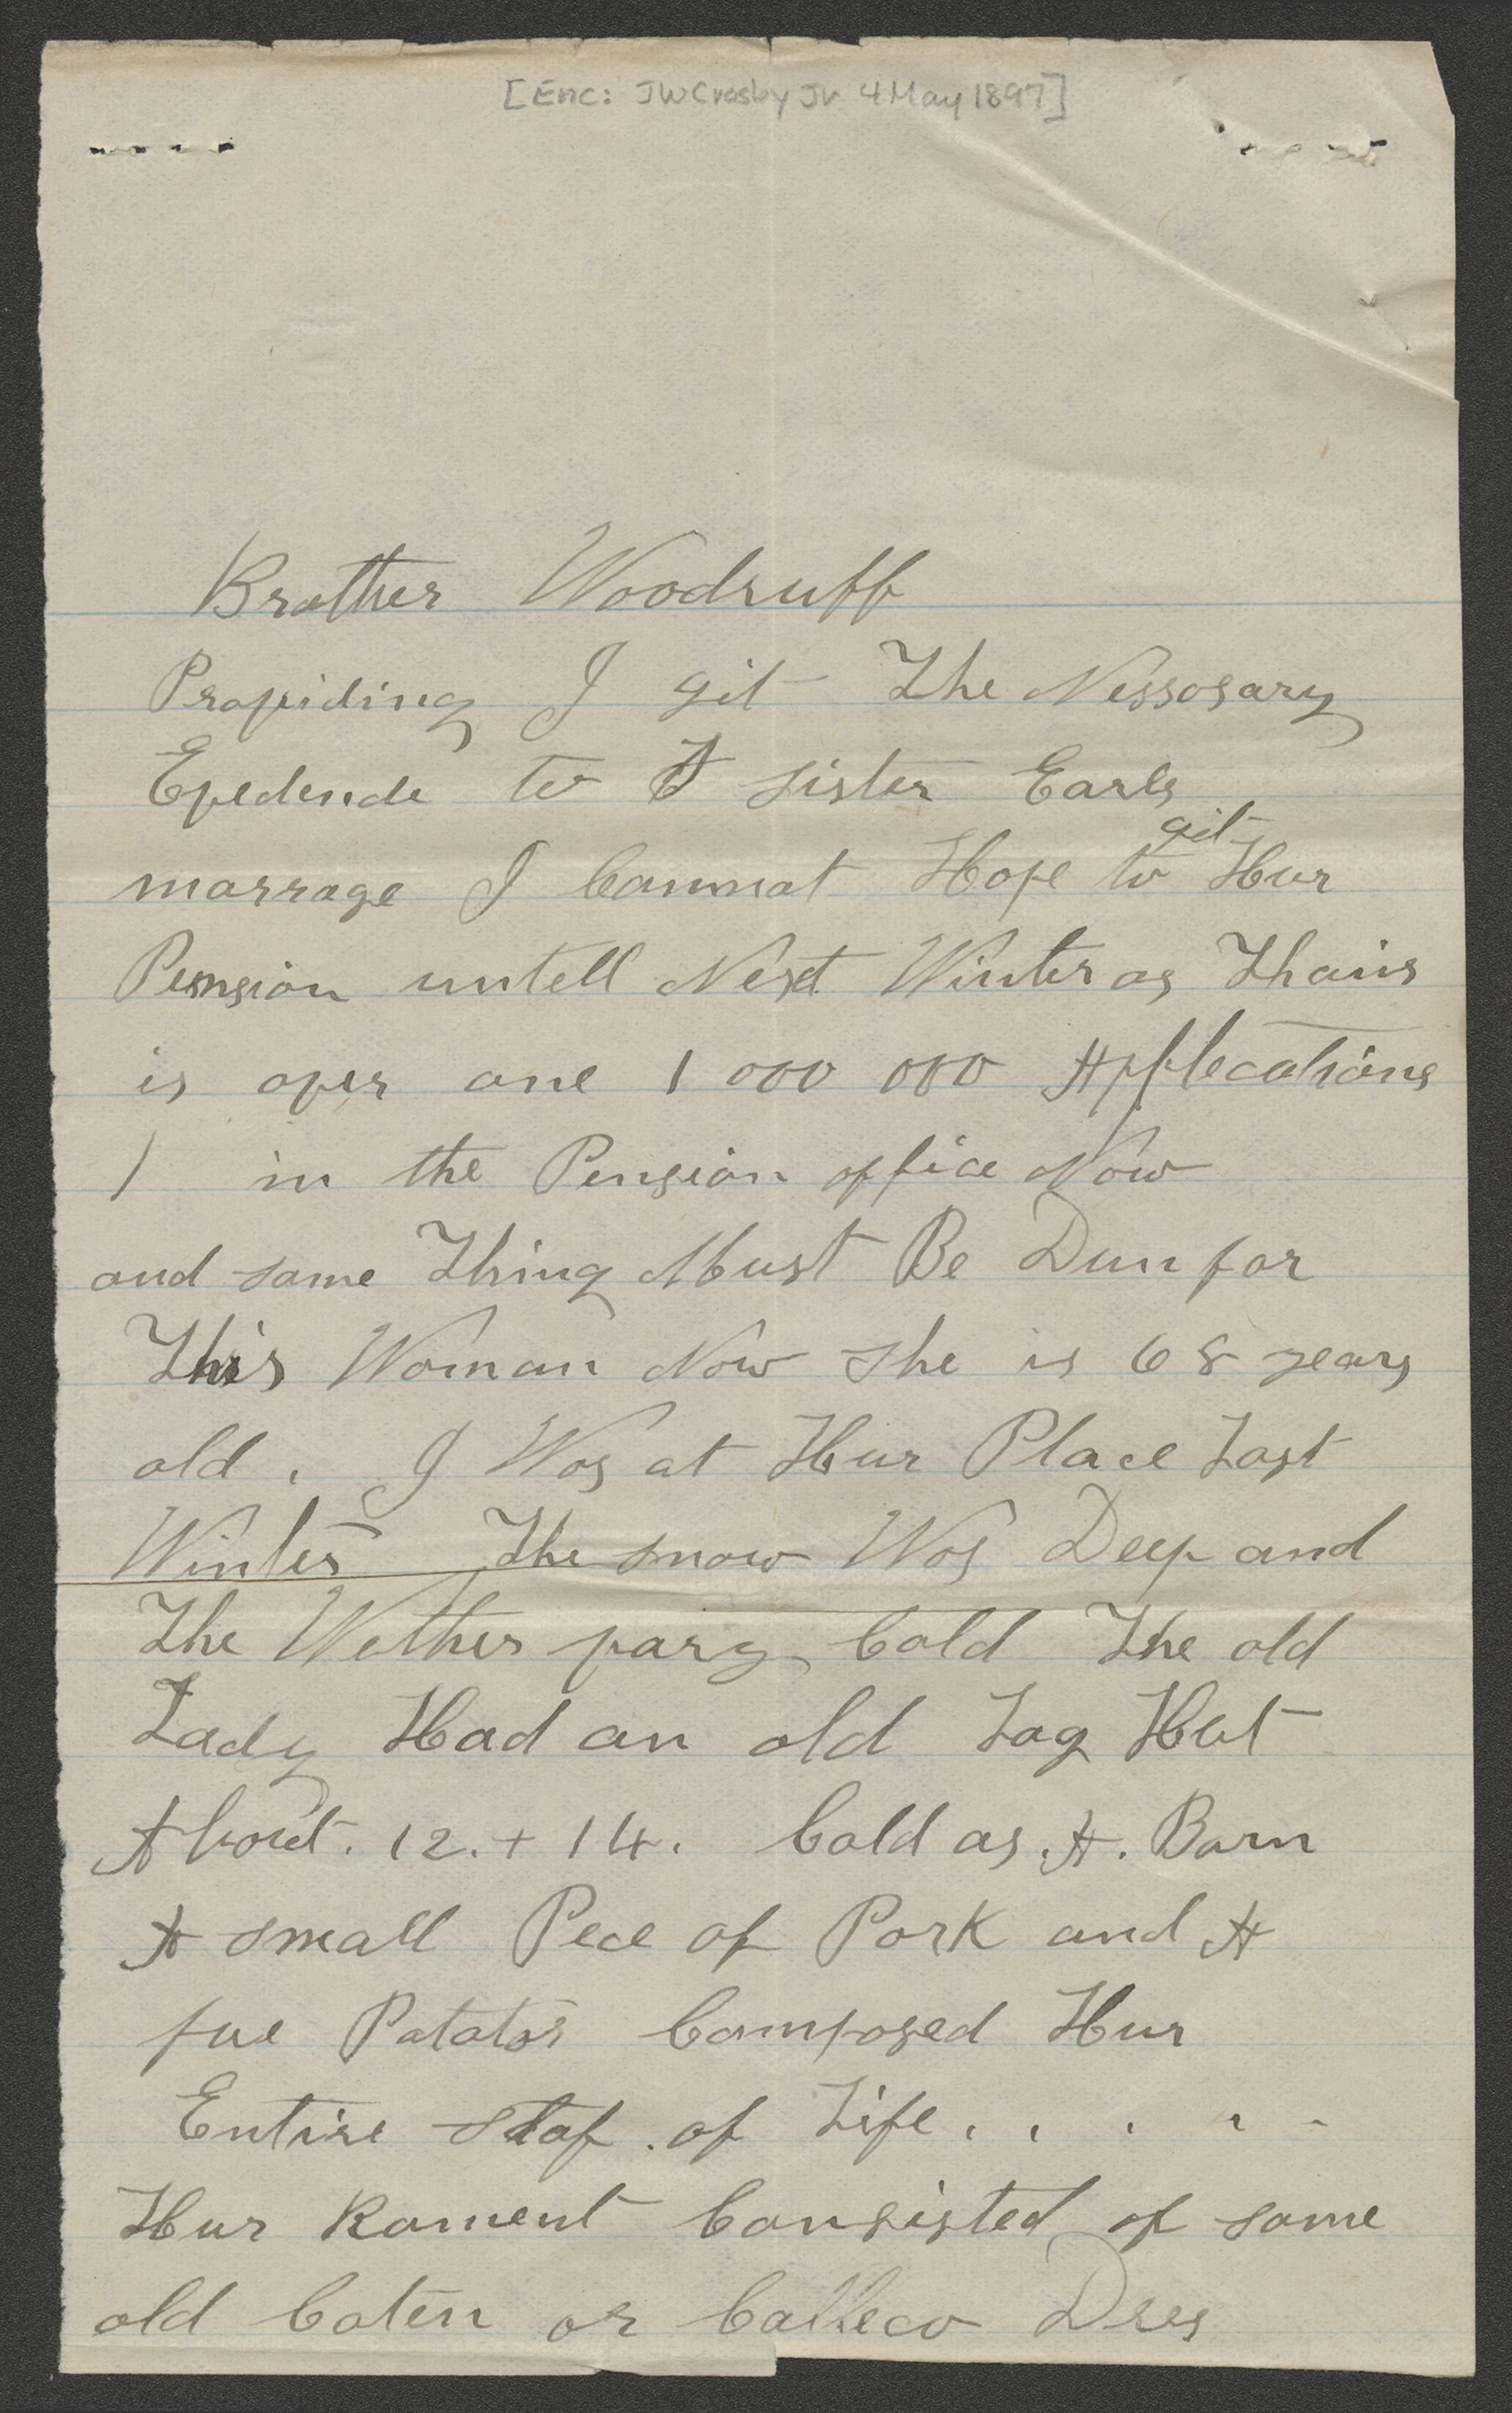 [Enc: JW Crosby Jr 4 May 1897]
Brother Woodruff
Propiding I git The Nessosary
Epedence to A sister Earls
git
marrage I Cannot Hope to Hur
Pension untell Next Winter as Thair
is oper one 1 000 000 Applecations
) in the Pension office Now
and some Thing Must Be Dun for
This Woman Now she is 68 years
old . I Wos at Hur Place Last
Winter The snow Wos Deep and
The Wether pary Cold The old
Lady Had an old Log Hut
About. 12. + 14. Cold as .A. Barn
A small Pece of Pork and A
fue Patatos Composed Hur
Entire Staf . of Life . . . . -
Hur Rament Consisted of some
old Coten or Calleco Dres